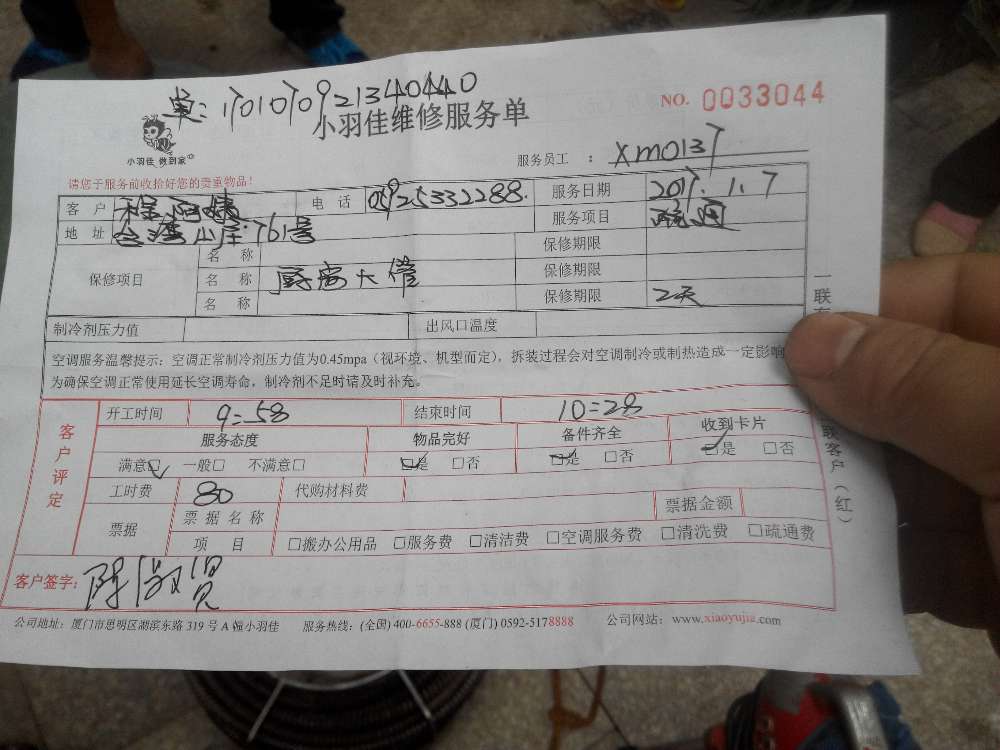 单:1701070921340440
小羽佳维修服务单
NO. 0033044
小羽佳 做到家
服务员工 : XM0137
请您于服务前收拾好您的贵重物品!
客 户 电 话 05925332288. 服务日期 2017.1.7
地 址 761号 服务项目 疏通
保修项目 名 称 保修期限
名 称 厨房大管 保修期限
名 称 保修期限 2天
制冷剂压力值 出风口温度
空调服务温馨提示:空调正常制冷剂压力值为0.45mpa(视环境、机型而定),拆装过程会对空调制冷或制热造成一定影响
为确保空调正常使用延长空调寿命,制冷剂不足时请及时补充。
客户评定
开工时间 9=58 结束时间 10=28
服务态度 物品完好 备件齐全 收到卡片
满意□ 一般□ 不满意□ □是 □否 □是 □否 □是 □否
工时费 80 代购材料费
票据 票据名称 票据金额
项 目 □搬办公用品 □服务费 □清洁费 □空调服务费 □清洗费 □疏通费
客户签字: 陈淑贤
公司地址:厦门市思明区湖滨东路 319 号 A 幢小羽佳 服务热线:(全国) 400-6655-888 (厦门) 0592-5178888 公司网站:www.xiaoyujia.com
一联
联客户(红)